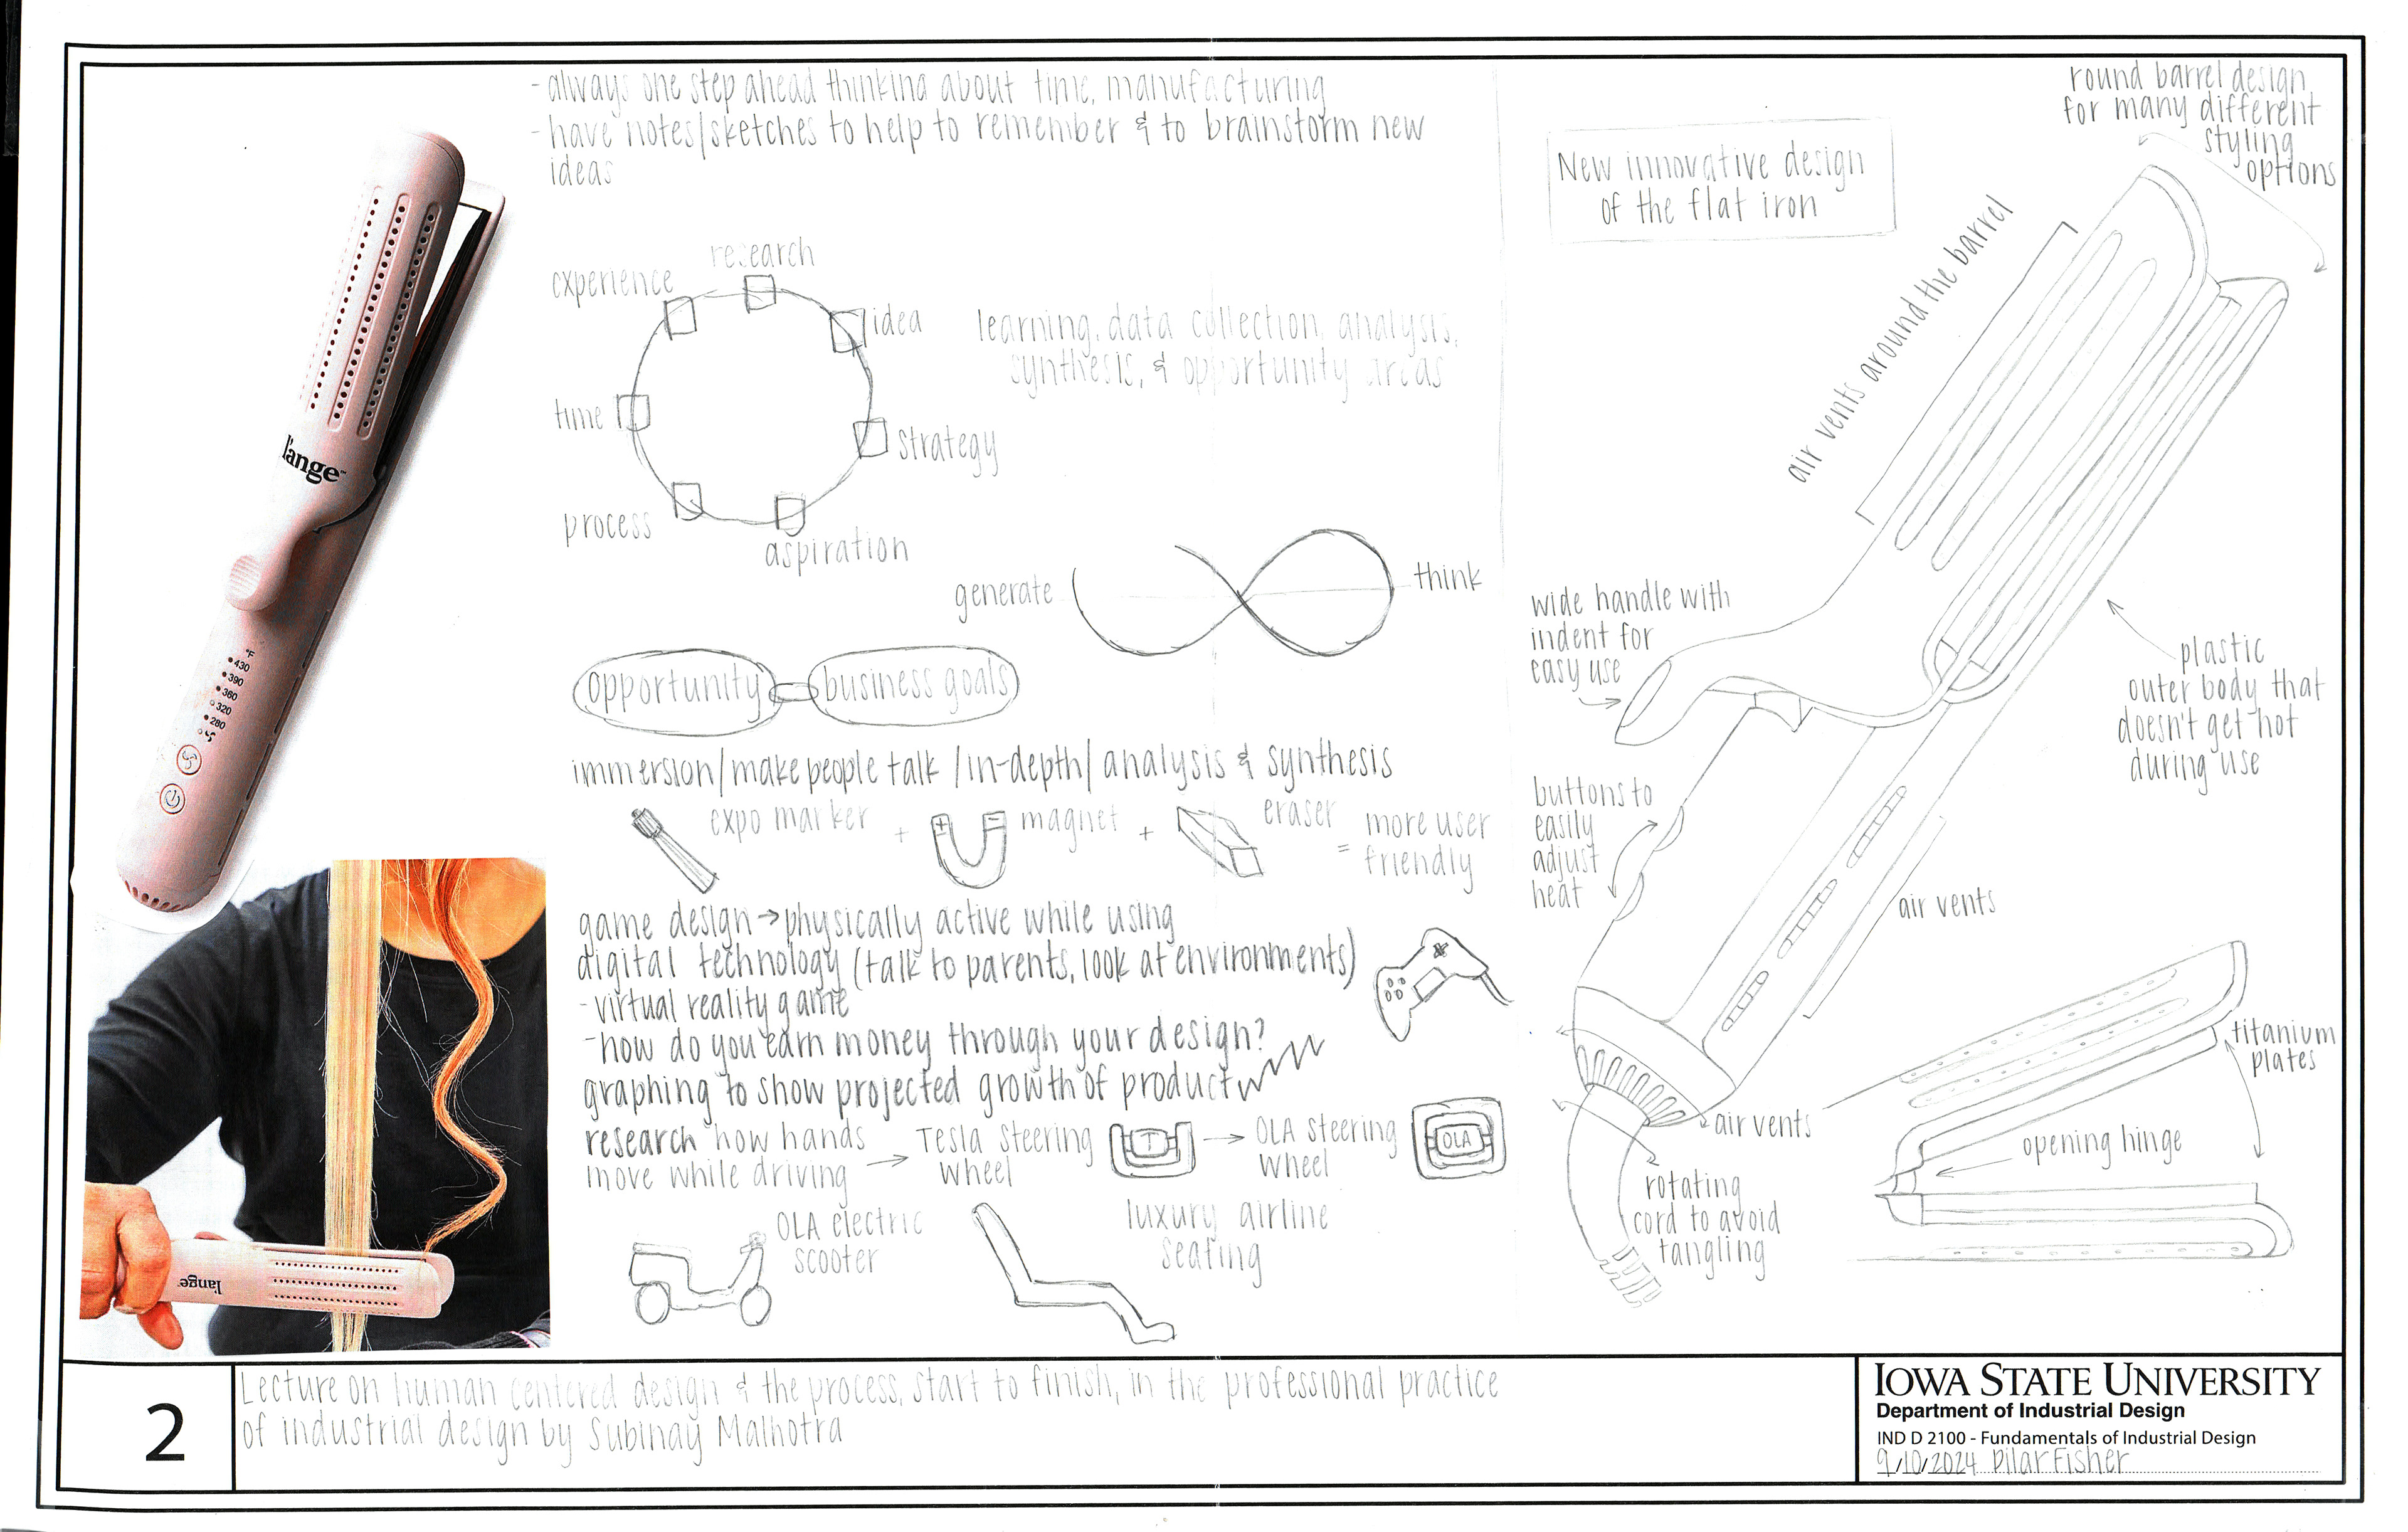 - always one step ahead thinking about time, manufacturing
- have notes/sketches to help to remember & to brainstorm new
ideas
research
experience
idea
time
strategy
process
aspiration
learning, data collection, analysis,
synthesis, & opportunity areas
generate
think
opportunity
business goals
immersion/make people talk /in-depth/ analysis & synthesis
expo marker
+
+
-
magnet
+
eraser
= more user
friendly
game design → physically active while using
digital technology (talk to parents, look at environments)
- virtual reality game
- how do you earn money through your design?
graphing to show projected growth of product
research how hands
move while driving
→ Tesla steering
wheel
T
→ OLA steering
wheel
OLA
OLA electric
scooter
luxury airline
seating
l'ange™
°F
430
390
360
320
280
l'ange
New innovative design
of the flat iron
round barrel design
for many different
styling
options
air vents around the barrel
wide handle with
indent for
easy use
plastic
outer body that
doesn't get hot
during use
buttons to
easily
adjust
heat
air vents
titanium
plates
air vents
opening hinge
rotating
cord to avoid
tangling
2
Lecture on human centered design & the process, start to finish, in the professional practice
of industrial design by Subinay Malhotra
IOWA STATE UNIVERSITY
Department of Industrial Design
IND D 2100 - Fundamentals of Industrial Design
9/10/2024 Pilar Fisher